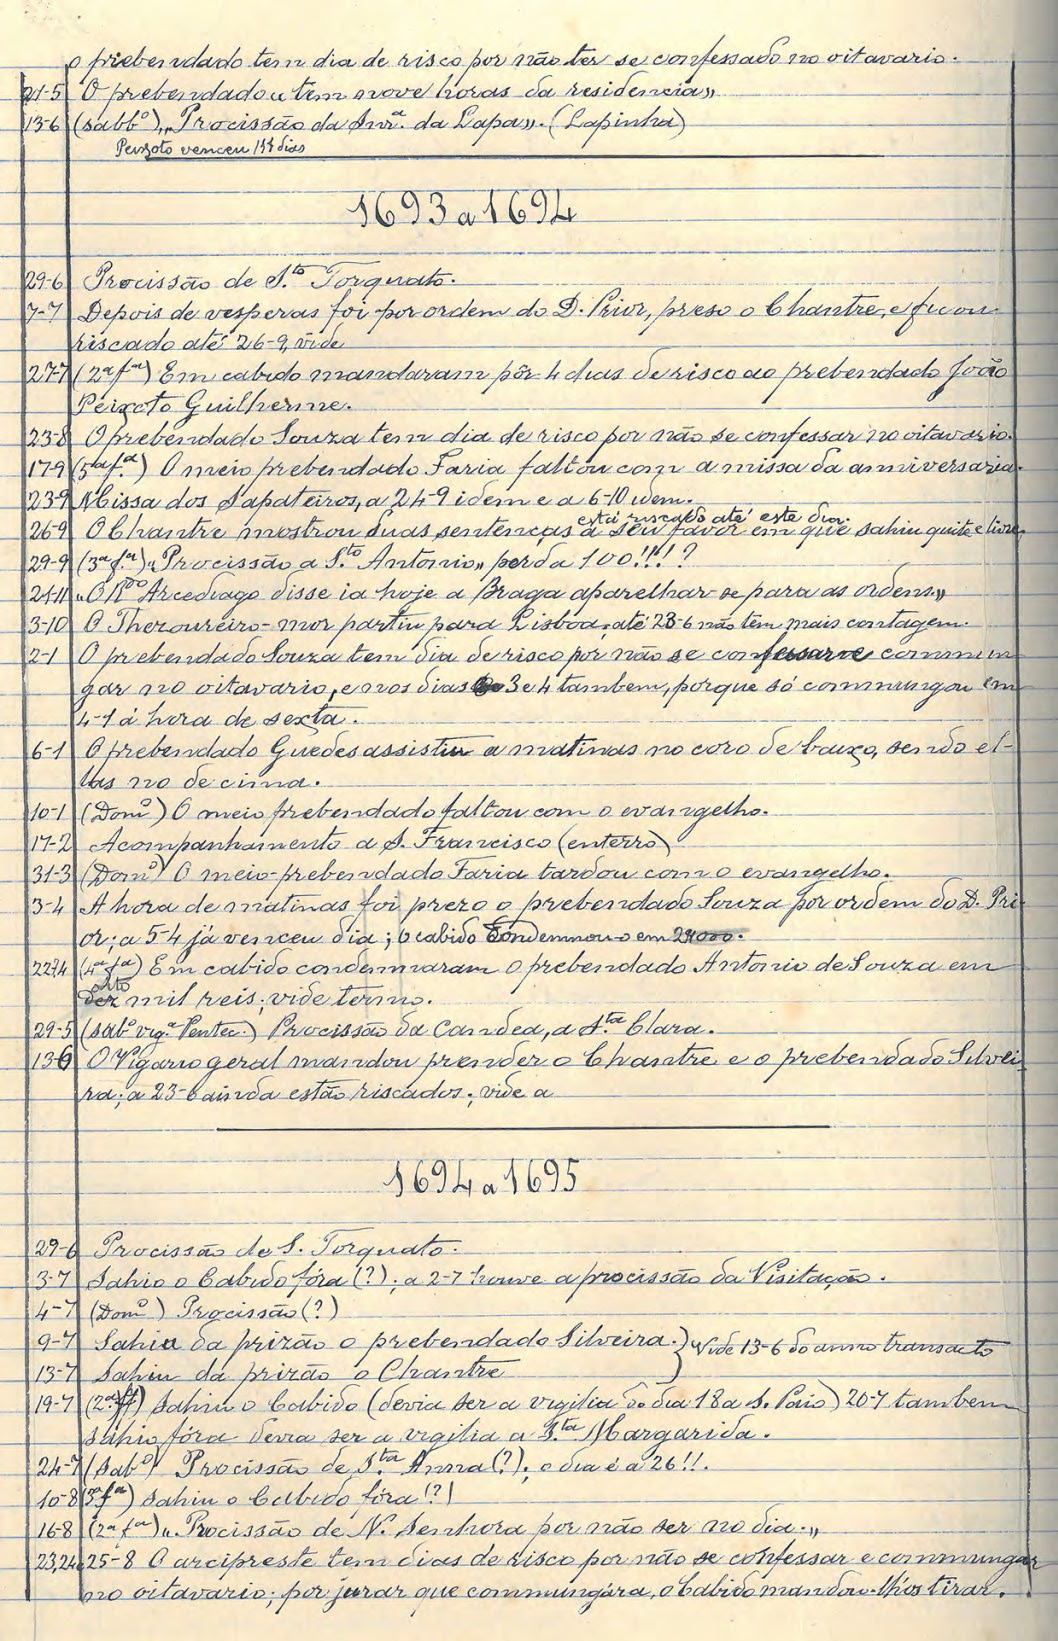 o prebendado tem dia de risco por não ter se confessado no oitavario.
21-5 O prebendado u tem nove horas da residencia»
13-6 (sabbº) „Procissão da Snrª. da Lapa». (Lapinha)
Peixoto venceu 144 dias
1693 a 1694
29-6 Procissão de S.to Torquato.
7-7 Depois de vesperas foi por ordem do D. Prior, preso o Chantre, e ficou
riscado até 26-9, vide
27-7 (2ª fª) Em cabido mandaram pôr 4 dias de risco ao prebendado João
Peixoto Guilherme.
23-8 O prebendado Souza tem dia de risco por não se confessar no oitavario.
17-9 (5ª f.ª) O meio prebendado Faria faltou com a missa da anniversaria.
23-9 Missa dos Sapateiros, a 24-9 idem e a 6-10 idem.
está riscado até este dia.
26-9 O Chantre mostrou duas sentenças a seu favor em que sahiu quite e livre,
29-9 (3ª f.ª) „Procissão a S.to Antonio» perda 100!!!?
21-11 „O Rdo Arcediago disse ia hoje a Braga aparelhar-se para as ordens»
3-10 O Thezoureiro-mor partiu para Lisboa, até 23-6 não tem mais contagem.
2-1 O prebendado Souza tem dia de risco por não se confessar e commun
gar no oitavario, e nos dias 3 e 4 tambem, porque só commungou em
4-1 á hora de sexta.
6-1 O prebendado Guedes assistiu a matinas no coro de baixo, sendo el-
las no de cima.
10-1 (Domº) O meio prebendado faltou com o evangelho.
17-2 Acompanhamento a S. Francisco (enterro)
31-3 (Domº) O meio-prebendado Faria tardou com o evangelho.
3-4 A hora de matinas foi prezo o prebendado Souza por ordem do D. Pri
or; a 5-4 já venceu dia; o cabido condemnou-o em
22-4 (4ª fª) Em cabido condemnaram o prebendado Antonio de Souza em
oito
dez mil reis; vide termo.
29-5 (sabº vigª Pentec.) Procissão da Candea, a S.ta Clara.
13-6 O Vigario geral mandou prender o Chantre e o prebendado Silvei
ra; a 23-6 ainda estão riscados; vide a
1694 a 1695
29-6 Procissão de S. Torquato.
3-7 Sahio o Cabido fóra (?); a 2-7 houve a procissão da Visitação.
4-7 (Domº) Procissão (?)
9-7 Sahiu da prizão o prebendado Silveira. } Vide 13-6 do anno transacto
13-7 Sahiu da prizão o Chantre
19-7 (2ª fª) Sahiu o Cabido (devia ser a vigilia do dia 18 a S. Paio) 20-7 tambem
sahio fóra devia ser a vigilia a S.ta Margarida.
24-7 (Sabº) Procissão de S.ta Anna (?); o dia é a 26!!.
10-8 (3ª fª) Sahiu o Cabido fóra (?)
16-8 (2ª fª) „Procissão de N. Senhora por não ser no dia.„
23, 24 e 25-8 O arcipreste tem dias de risco por não se confessar e commungar
no oitavario; por jurar que commungára, o Cabido mandou-lh'os tirar.